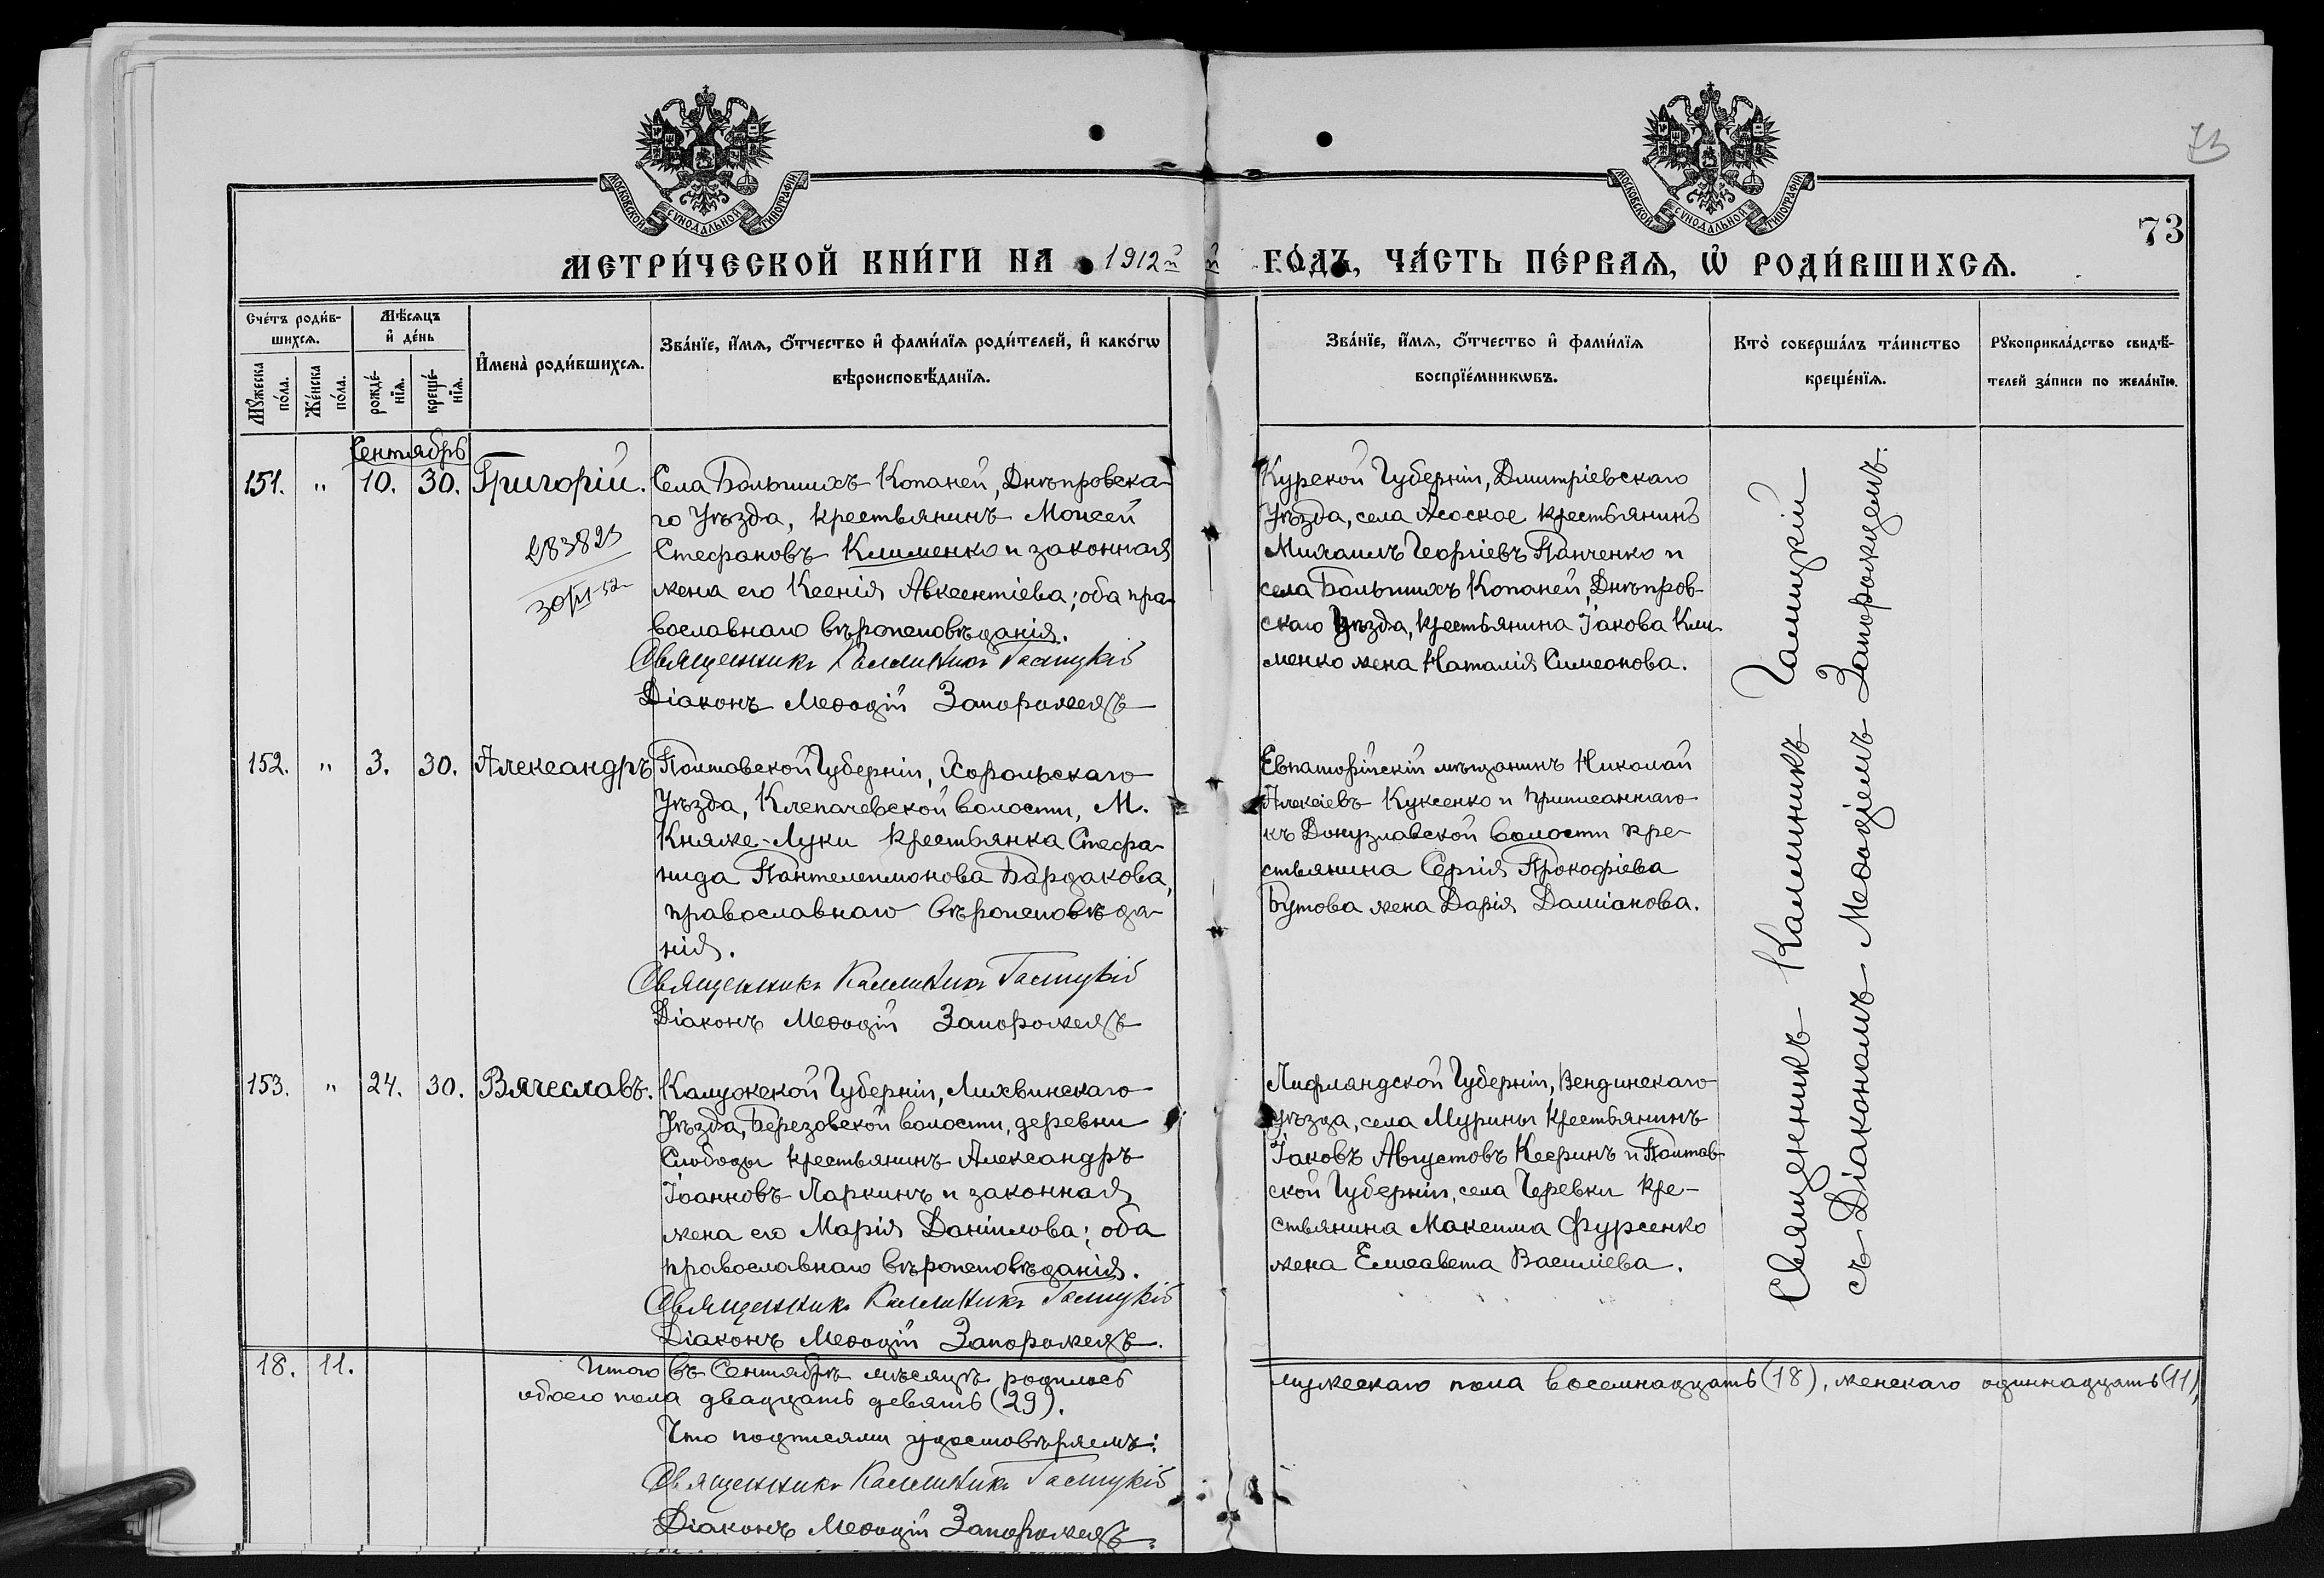 МОСКОВСКОЙ СѴНОДАЛЬНОЙ ТИПОГРАФІИ
МОСКОВСКОЙ СѴНОДАЛЬНОЙ ТИПОГРАФІИ
73
73
МЕТРИ́ЧЕСКОЙ КНИ́ГИ НА 1912й
й ГО́ДЪ, ЧА́СТЬ ПЕ́РВАѦ, Ѡ҆ РОДИ́ВШИХСѦ.
Сче́тъ роди́в-
шихсѧ.
Мꙋ́жеска по́ла.
Же́нска по́ла.
Мѣ́сѧцъ и҆ де́нь
рожде́-нїѧ.
креще́-нїѧ.
И҆мена̀ роди́вшихсѧ.
Зва́нїе, и҆́мѧ, ѻ҆́тчество и҆ фами́лїѧ роди́телей, и҆ како́гѡ
вѣроисповѣ́данїѧ.
Зва́нїе, и҆́мѧ, ѻ҆́тчество и҆ фами́лїѧ
воспрїе́мникѡвъ.
Кто̀ соверша́лъ та́инство
креще́нїѧ.
Рꙋкоприкла́дство свидѣ́-
телей за́писи по жела́нїю.
Сентябрь
151. " 10. 30. Григорій.
Села Большихъ Копаней, Днѣпровска-
го Уѣзда, крестьянинъ Моисей
Стефановъ Клименко и законная
жена его Ксенія Авксентіева; оба пра-
вославнаго вѣроисповѣданія.
Священникъ Каллиникъ Галицкій
Діаконъ Меѳодій Запорожецъ
283823
Курской Губерніи, Дмитріевскаго
Уѣзда, села крестьянинъ
Михаилъ Георгіевъ Панченко и
села Большихъ Копаней, Днѣпров-
скаго Уѣзда, крестьянина Іакова Кли-
менко жена Наталія Симеонова.
152. " 3. 30. Александръ
Полтавской Губерніи, Хорольскаго
Уѣзда, Клепачевской волости, М.
Княже-Луки крестьянка Стефа-
нида Пантелеимонова Бардакова,
православнаго вѣроисповѣда-
нія.
Священникъ Каллиникъ Галицкій
Діаконъ Меѳодій Запорожецъ
Евпаторійскій мѣщанинъ Николай
Алексіевъ Куксенко и приписаннаго
къ Донузлавской волости кре-
стьянина Сергія Прокофіева
Бутова жена Дарія Даміанова.
153. " 24. 30. Вячеславъ.
Калужской Губерніи, Лихвинскаго
Уѣзда, Березовской волости, деревни
Слободы крестьянинъ Александръ
Іоанновъ Ларкинъ и законная
жена его Марія Даніилова; оба
православнаго вѣроисповѣданія.
Священникъ Каллиникъ Галицкій
Діаконъ Меѳодій Запорожецъ.
Лифляндской Губерніи, Вендинскаго
уѣзда, села Мурины крестьянинъ
Іаковъ Августовъ Кееринъ и Полтав-
ской Губерніи, села Черевки кре-
стьянина Максима Фурсенко
жена Елисавета Василіева.
Священникъ Каллиникъ Галицкій
съ Діакономъ Меѳодіемъ Запорожцемъ.
18. 11.
Итого въ Сентябрѣ мѣсяцѣ родилось
обоего пола двадцать девять (29).
Что подписями удостовѣряемъ:
Священникъ Каллиникъ Галицкій
Діаконъ Меѳодій Запорожецъ.
мужескаго пола восемнадцать (18), женскаго одиннадцать (11),